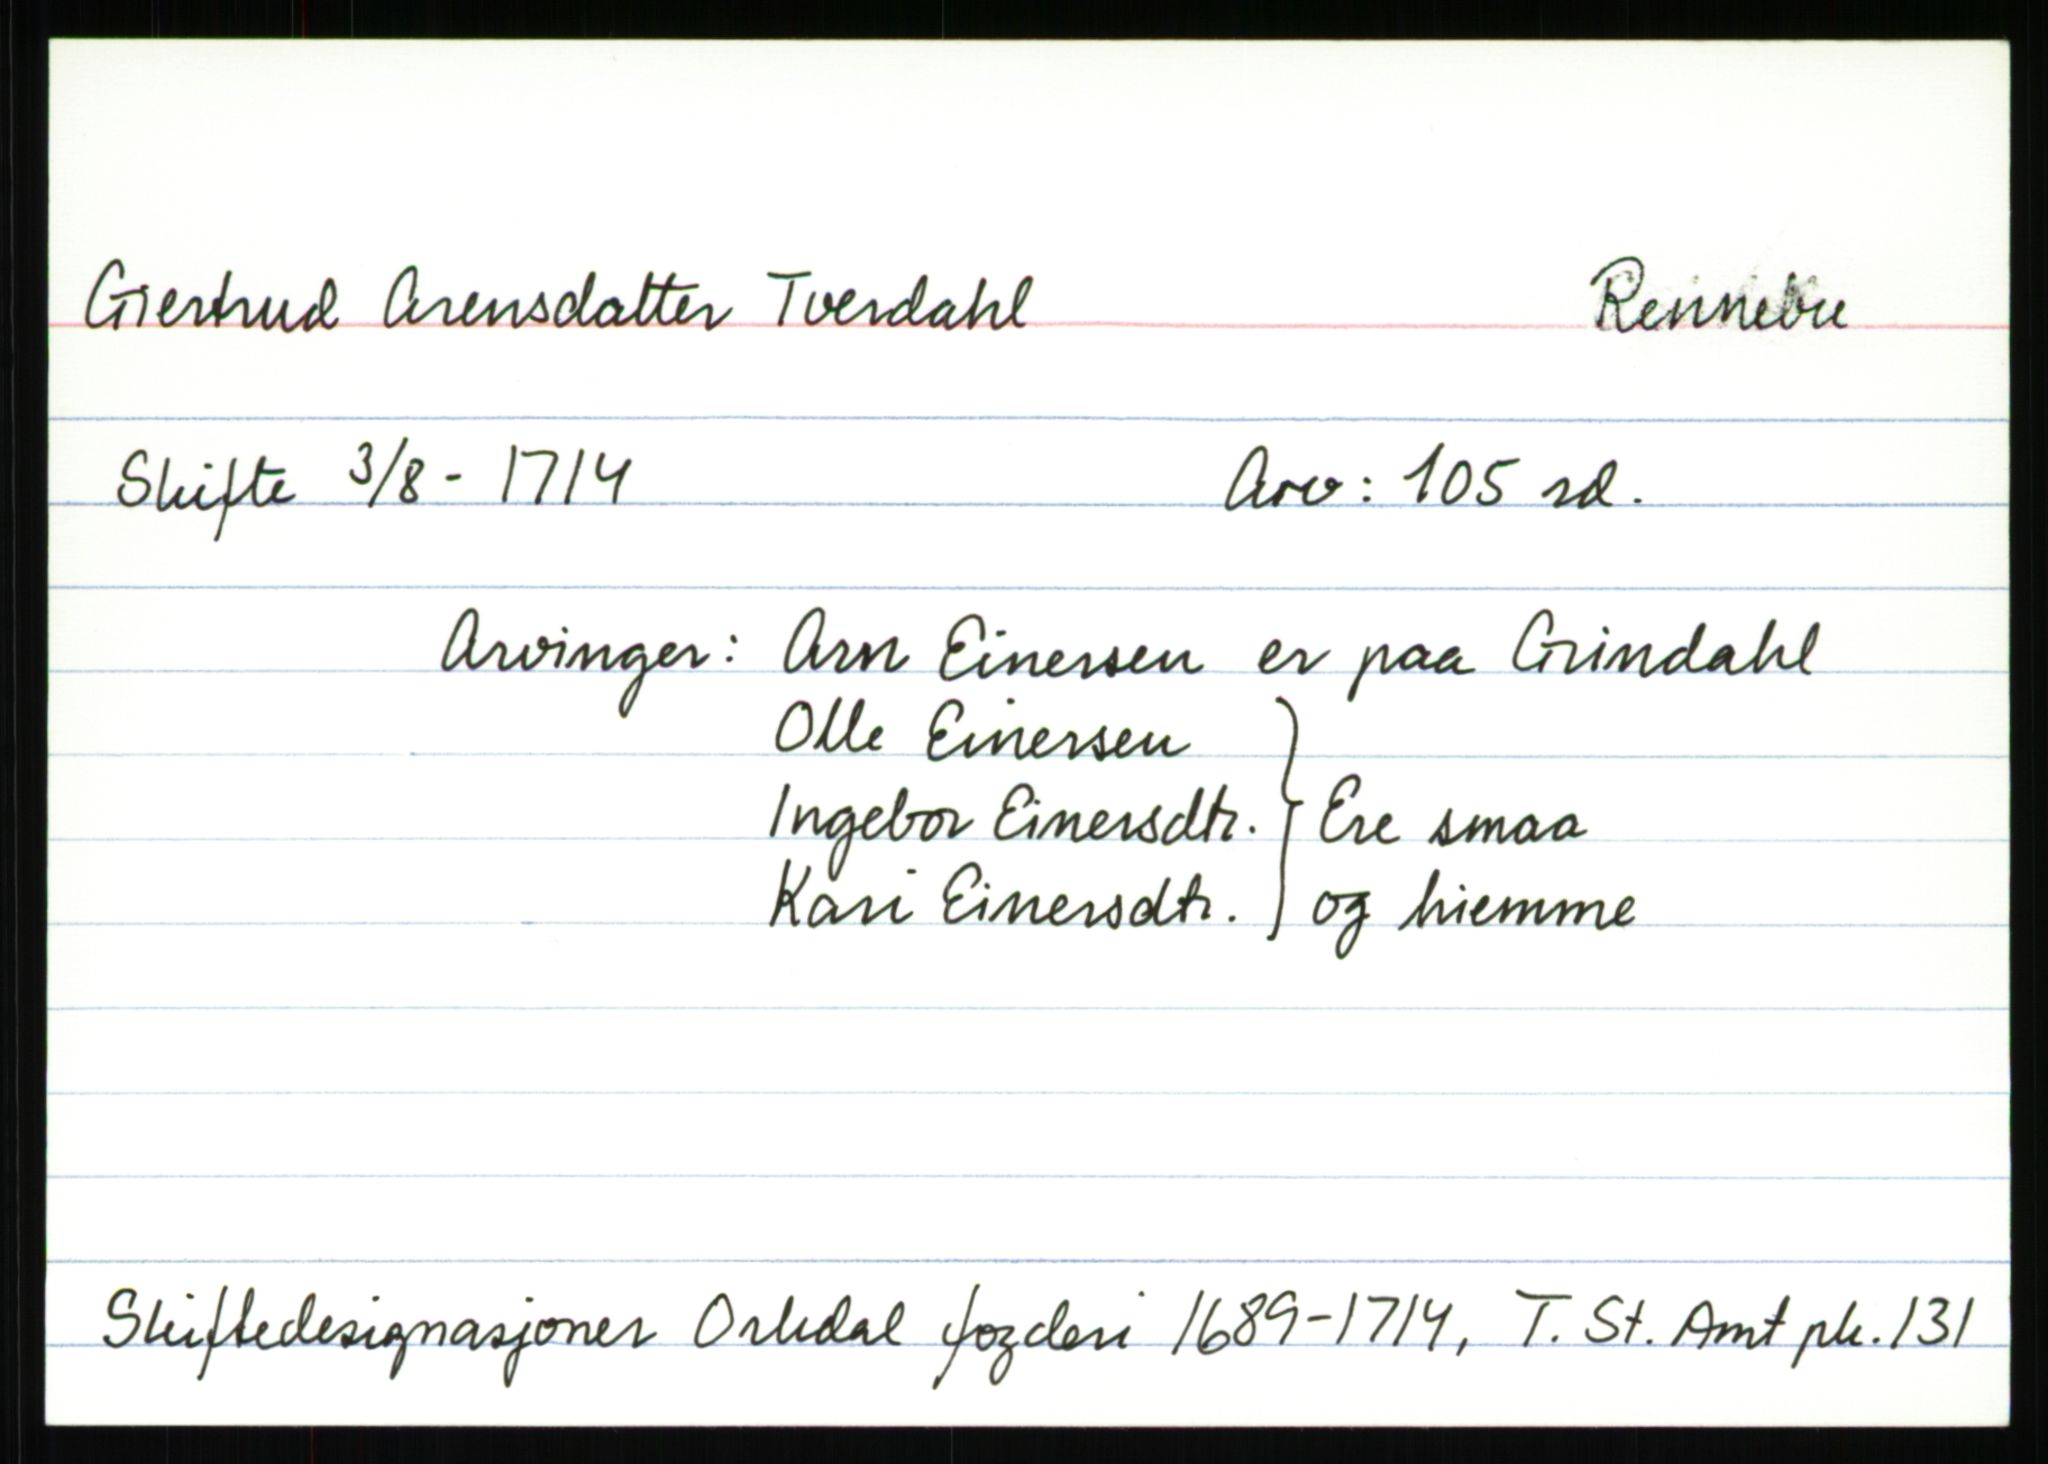 Giertrud Arensdatter Tverdahl Rennebu
Skifte 3/8 - 1714 Arv: 105 rd.
Arvinger: Arn Einersen er paa Grindahl
Olle Einersen
Ingebor Einersdtr. } Ere smaa
Kari Einersdtr. og hiemme
Skiftedesignasjoner Orkdal fogderi 1689-1714, T. St. Amt pk. 131